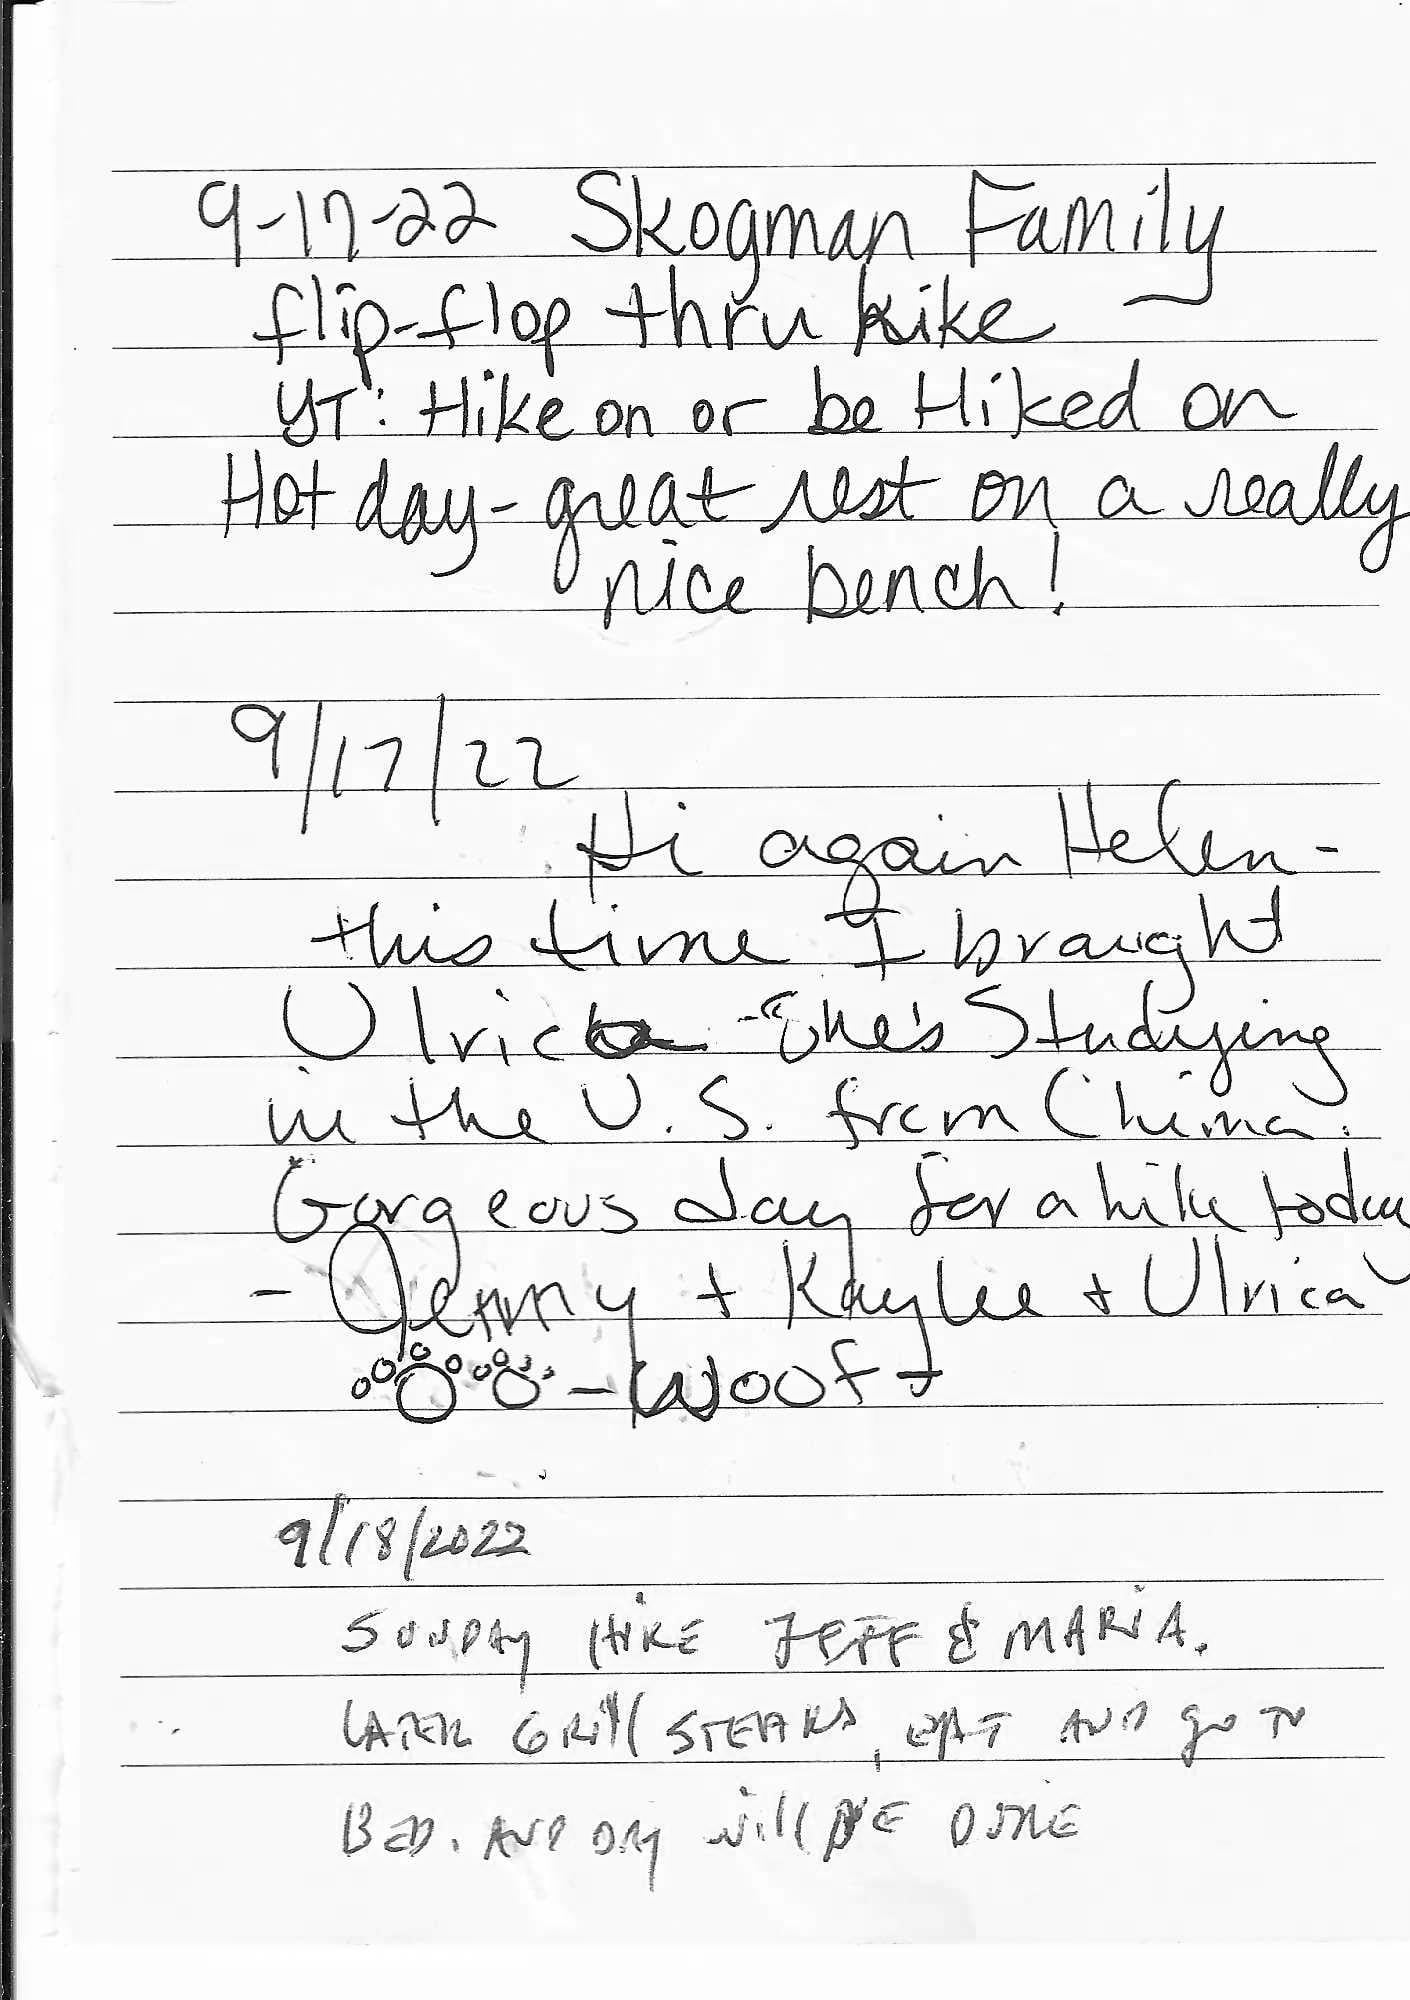 9-17-22 Skogman Family
flip-flop thru hike
YT: Hike on or be Hiked on
Hot day - great rest on a really
nice bench!
9/17/22
Hi again Helen -
this time I brought
Ulrica - She's Studying
in the U.S. from China.
Gorgeous day for a hike today
- Jenny + Kaylee + Ulrica
- Woof +
9/18/2022
SUNDAY HIKE JEFF & MARIA.
LATER GRill STEAKS, EAT AND go TO
BED. AND DAY will BE DONE